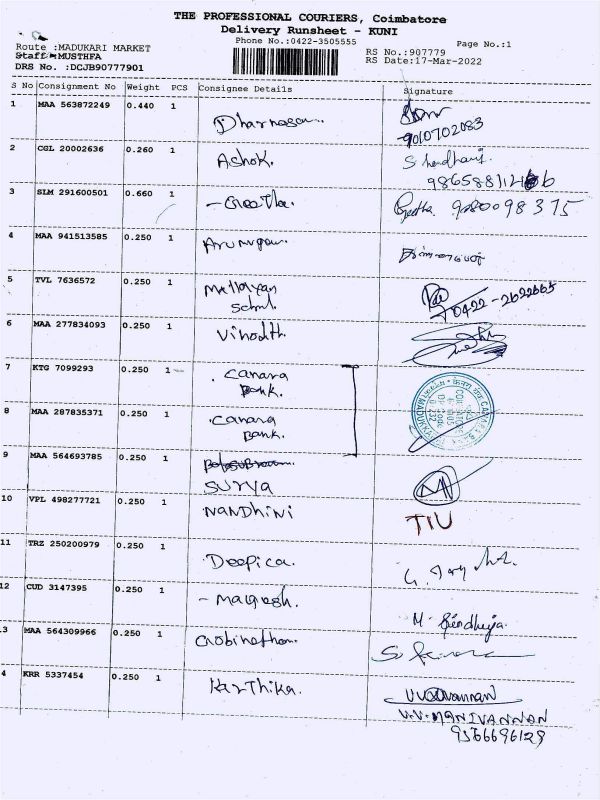 THE PROFESSIONAL COURIERS, Coimbatore
Delivery Runsheet - KUNI
Phone No.:0422-3505555
Page No.:1
Route :MADUKARI MARKET
Staff :MUSTHFA
DRS No. :DCJB90777901
RS No.:907779
RS Date:17-Mar-2022
S No Consignment No Weight PCS Consignee Details Signature
1 MAA 563872249 0.440 1
9010702083
2 CGL 20002636 0.260 1 Ashok.
3 SLM 291600501 0.660 1 Geetha. Geetha. 9080098375
4 MAA 941513585 0.250 1 Arumugam.
5 TVL 7636572 0.250 1
0422-2622665
6 MAA 277834093 0.250 1 Vinodth
7 KTG 7099293 0.250 1 Canara
Bank.
8 MAA 287835371 0.250 1 Canara
Bank.
9 MAA 564693785 0.250 1
SURYA
10 VPL 498277721 0.250 1 NANDHINI TIU
11 TRZ 250200979 0.250 1 Deepica.
12 CUD 3147395 0.250 1 M. Sindhuja.
3 MAA 564309966 0.250 1 Gobinathan.
4 KRR 5337454 0.250 1 Karthika.
V.V.MANIVANNAN
9566696129